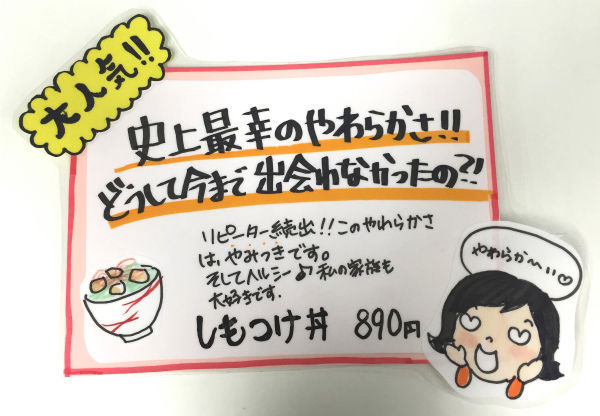 大人気!!
史上最幸のやわらかさ!!
どうして今まで出会わなかったの?!
リピーター続出!!このやわらかさ
は、やみつきです。
そしてヘルシー♪私の家族も
大好きです.
しもつけ丼 890円
やわらか〜い♡